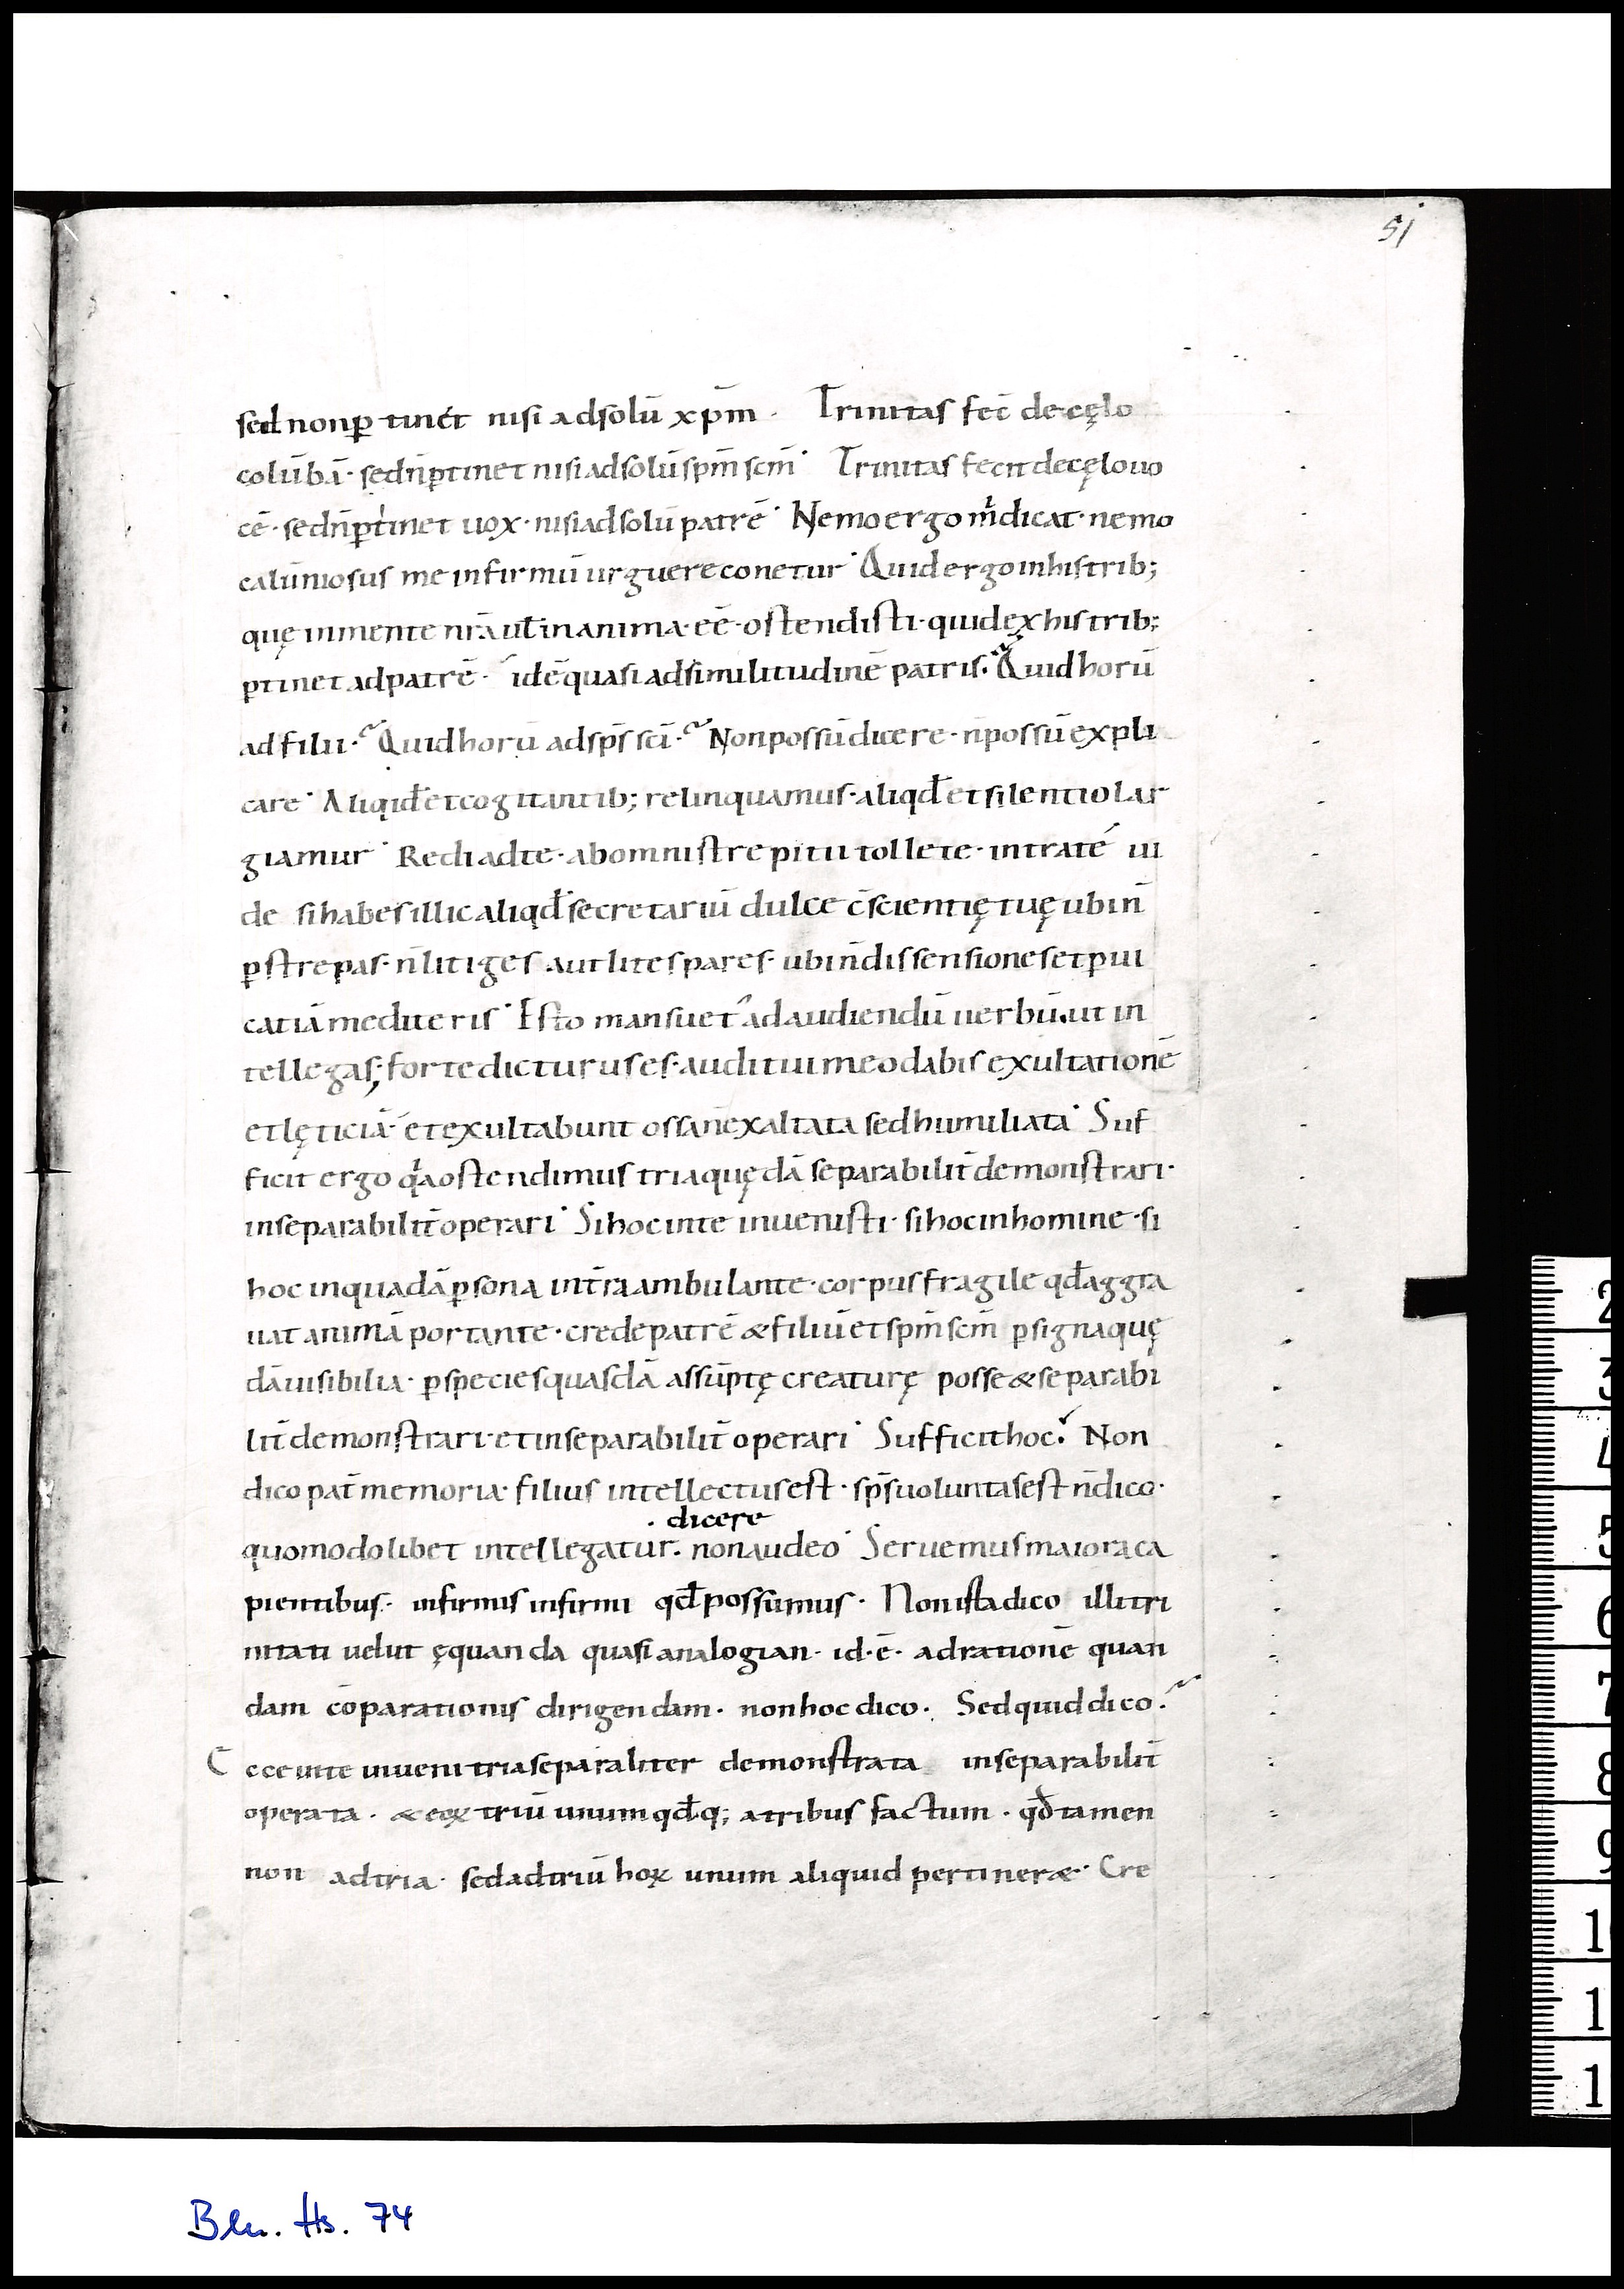 51
sed non ꝑtinet nisi ad solū xp̄m · Trinitas fec̄ de cęlo
colūbā · sed n̄ ꝑtinet nisi ad solū sp̄m sc̄m · Trinitas fecit de cęlo uo
cē · sed n̄ ꝑtinet uox · nisi ad solū patrē · Nemo ergo m̍ dicat · nemo
calūniosus me infirmū urguere conetur · Quid ergo in his trib;
quę in mente nr̄a ul̄ in anima · eē · ostendisti · quid ex his trib;
ꝑtinet ad patrē · id ē quasi ad similitudinē patris · Quid horū
ad filii · Quid horū ad sp̄s sc̄i · Non possū dicere · n̄ possū expli
care · Aliqid et cogitantib; relinquamus · aliqđ et silentio lar
giamur · Redi ad te · ab omni strepitu tolle te · intra te ui
de si habes illic aliqđ secretariū dulce c̄scientię tuę ubi n̄
ꝑstrepas · n̄ litiges aut lites pares · ubi n̄ dissensiones et ꝑui
catiā mediteris · Esto mansuet᾽ ad audiendū uerbū · ut in
tellegas; forte dicturus es · auditui meo dabis exultationē
et lęticiā · et exultabunt ossa n̄ exaltata sed humiliata · Suf
ficit ergo q̍a ostendimus tria quędā separabilit̄ demonstrari ·
inseparabilit̄ operari · Si hoc in te inuenisti · si hoc in homine · si
hoc in quadā ꝑsona in t̄ra ambulante · corpus fragile qđ aggra
uat animā portante · crede patrē & filiū et sp̄m sc̄m ꝑ signa quę
dā uisibilia · ꝑ species quasdā assūptę creaturę posse & separabi
lit̄ demonstrari · et inseparabilit̄ operari · Sufficit hoc · Non
dico pat̄ memoria · filius intellectus est · sp̄s uoluntas est n̄ dico ·
· dicere
quomodolibet intellegatur · non audeo · Seruemus maiora ca
pientibus · infirmis infirmi qđ possumus · Non ista dico illi tri
nitati uelut ęquanda quasi analogian · id · ē · ad rationē quan
dam cōparationis dirigendam · non hoc dico · Sed quid dico ·
Ecce in te inueni tria separaliter demonstrata inseparabilit̄
operata · & eoꝝ triū unum qđq; a tribus factum · qđ tamen
non ad tria · sed ad triū hoꝝ unum aliquid pertineræ · Cre
2
3
4
5
6
7
8
9
1
1
1
Bln. Hs. 74